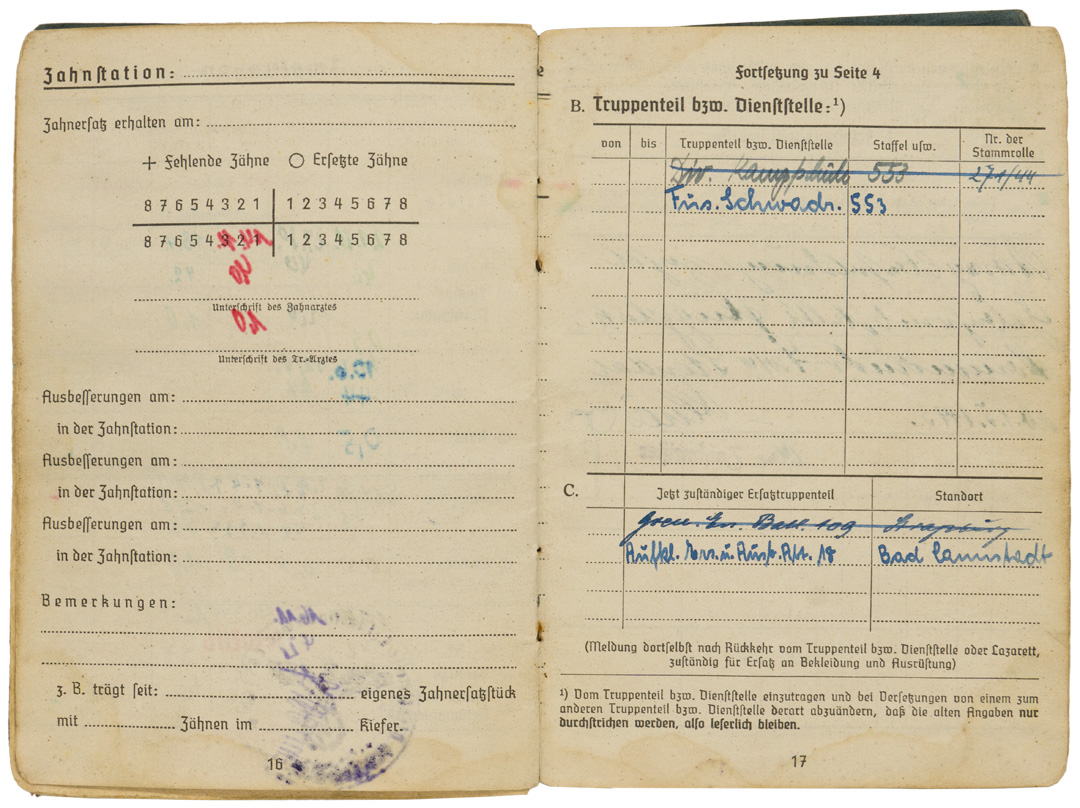 Zahnstation:
Zahnersatz erhalten am:
+ Fehlende Zähne ○ Ersetzte Zähne
8 7 6 5 4 3 2 1 1 2 3 4 5 6 7 8
8 7 6 5 4 3 2 1 1 2 3 4 5 6 7 8
Unterschrift des Zahnarztes
Unterschrift des Tr.-Arztes
Ausbesserungen am:
in der Zahnstation:
Ausbesserungen am:
in der Zahnstation:
Ausbesserungen am:
in der Zahnstation:
Bemerkungen:
z. B. trägt seit: eigenes Zahnersatzstück
mit Zähnen im Kiefer.
16
Fortsetzung zu Seite 4
B. Truppenteil bzw. Dienststelle:¹)
von bis Truppenteil bzw. Dienststelle Staffel usw. Nr. der Stammrolle
Div. Kampfschule 553 271/44
Füs. Schwadr. 553
C. Jetzt zuständiger Ersatztruppenteil Standort
Gren. Ers. Batl. 109 Straßburg
Aufkl. Ers. u. Ausb. Abt. 18 Bad Cannstadt
(Meldung dortselbst nach Rückkehr vom Truppenteil bzw. Dienststelle oder Lazarett,
zuständig für Ersatz an Bekleidung und Ausrüstung)
¹) Vom Truppenteil bzw. Dienststelle einzutragen und bei Versetzungen von einem zum
anderen Truppenteil bzw. Dienststelle derart abzuändern, daß die alten Angaben nur
durchstrichen werden, also leserlich bleiben.
17